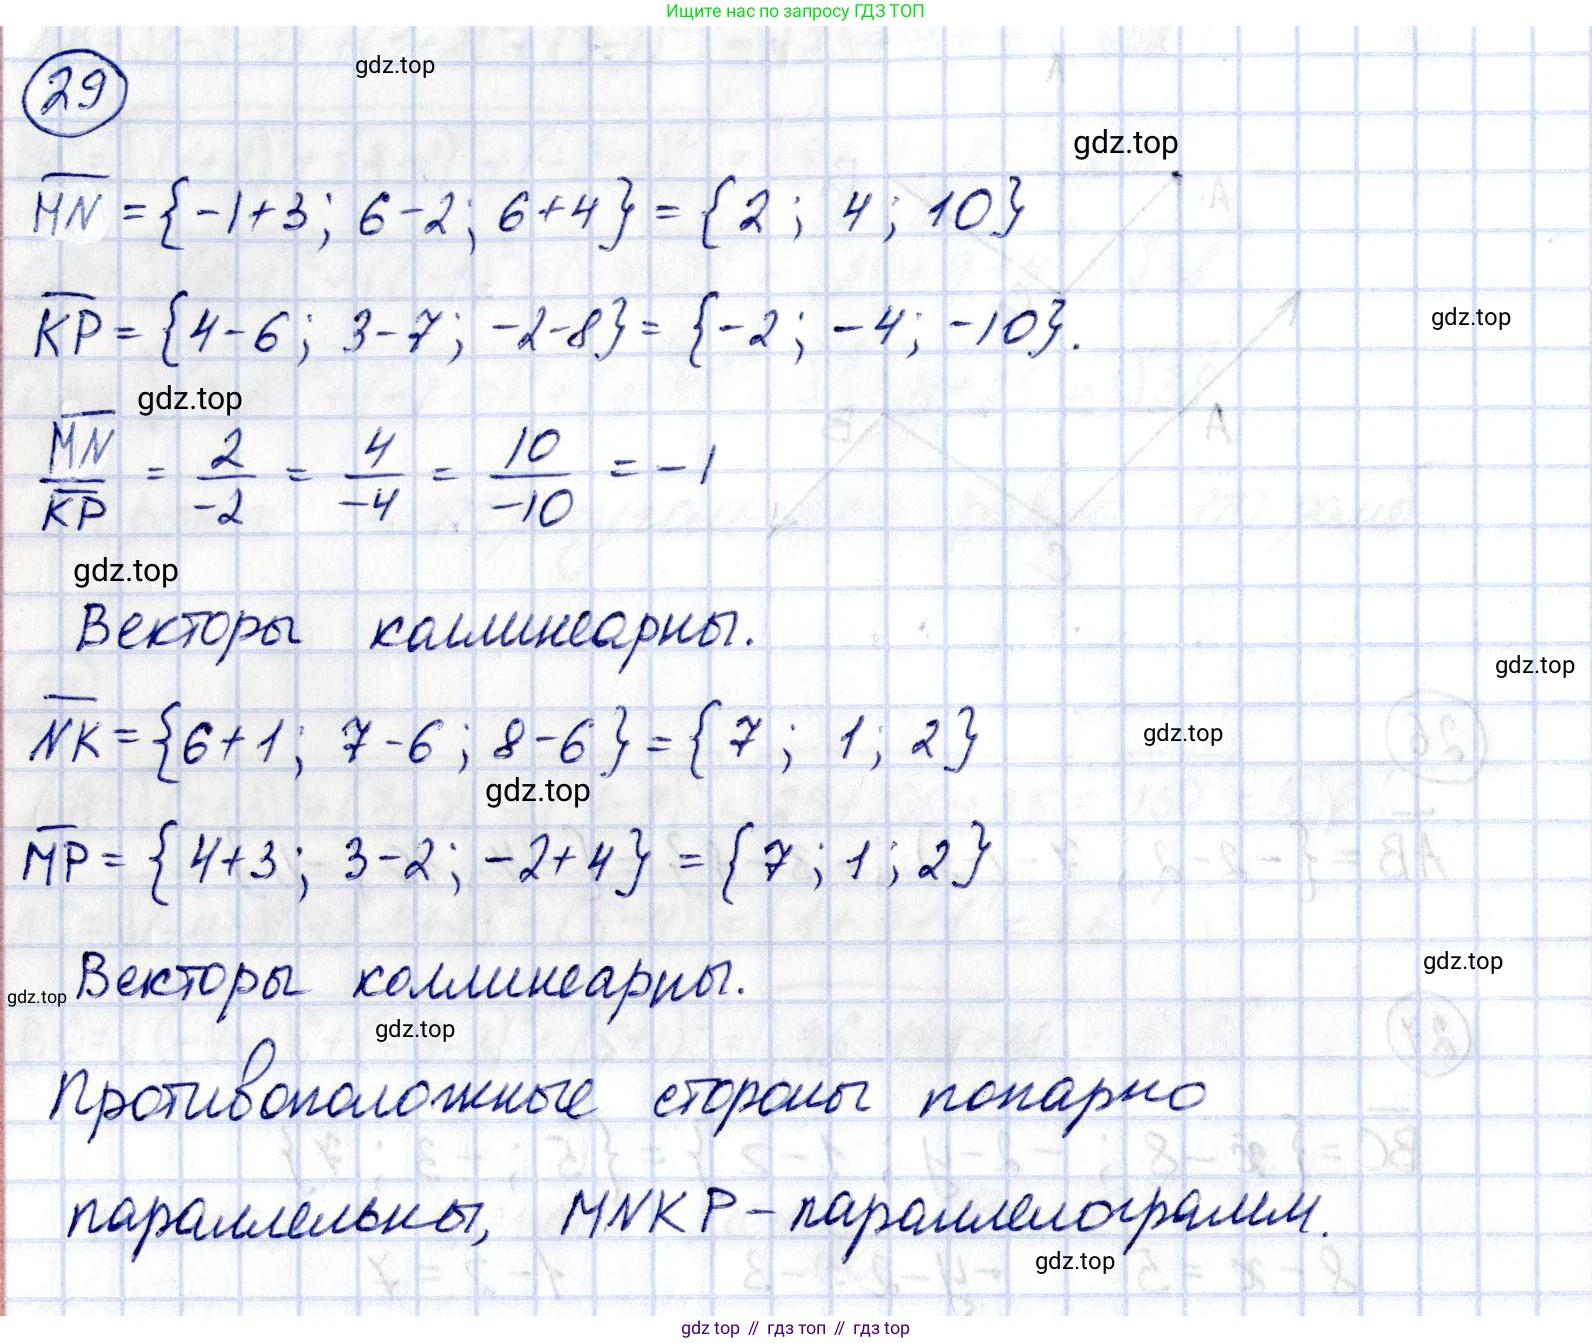 Ищите нас по запросу ГДЗ ТОП
29
gdz.top
gdz.top
MN = {-1+3; 6-2; 6+4} = {2; 4; 10}
KP = {4-6; 3-7; -2-8} = {-2; -4; -10}.
gdz.top
gdz.top
MN/KP = 2/-2 = 4/-4 = 10/-10 = -1
gdz.top
Векторы коллинеарны.
gdz.top
NK = {6+1; 7-6; 8-6} = {7; 1; 2}
gdz.top
gdz.top
MP = {4+3; 3-2; -2+4} = {7; 1; 2}
Векторы коллинеарны.
gdz.top
gdz.top
gdz.top
Противоположные стороны попарно
параллельны, MNKP - параллелограмм.
gdz.top
gdz.top // гдз топ // гдз top